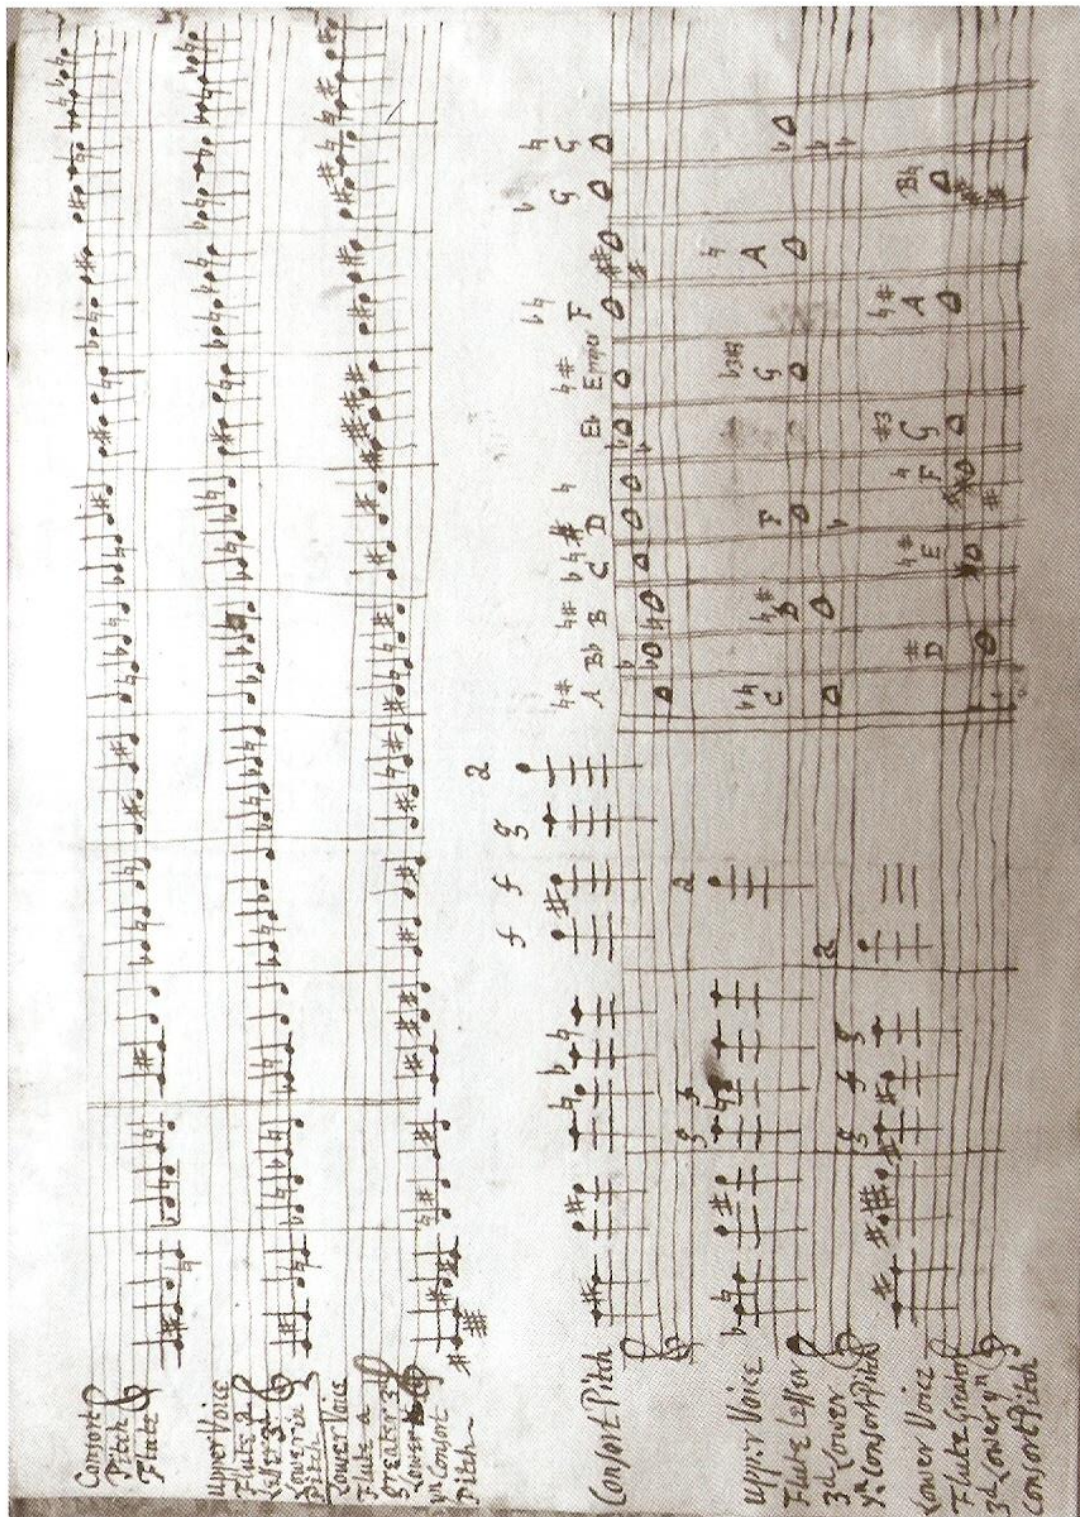 Consort
Pitch
Flute
Upper Voice
Flute a
Lesser 3d
Lower in
Pitch
Lower Voice
Flute a
Greater 3d
Lower
yn Consort
Pitch
f f g a
♮# ♭ ♮# ♭♮# ♮ ♮# ♭♮ ♭ ♮
A B♭ B C D E♭ E F G G
Consort Pitch
g a
♭♮ ♮# ♭3 ♮
C D F G A
Uppr Voice
Flute Lesser
3d Lower
yn Consort Pitch
g f g a
# ♮# ♮ #3 ♮# B♮
D E F G A
Lower Voice
Flute Greater
3d Lower yn
Consort Pitch